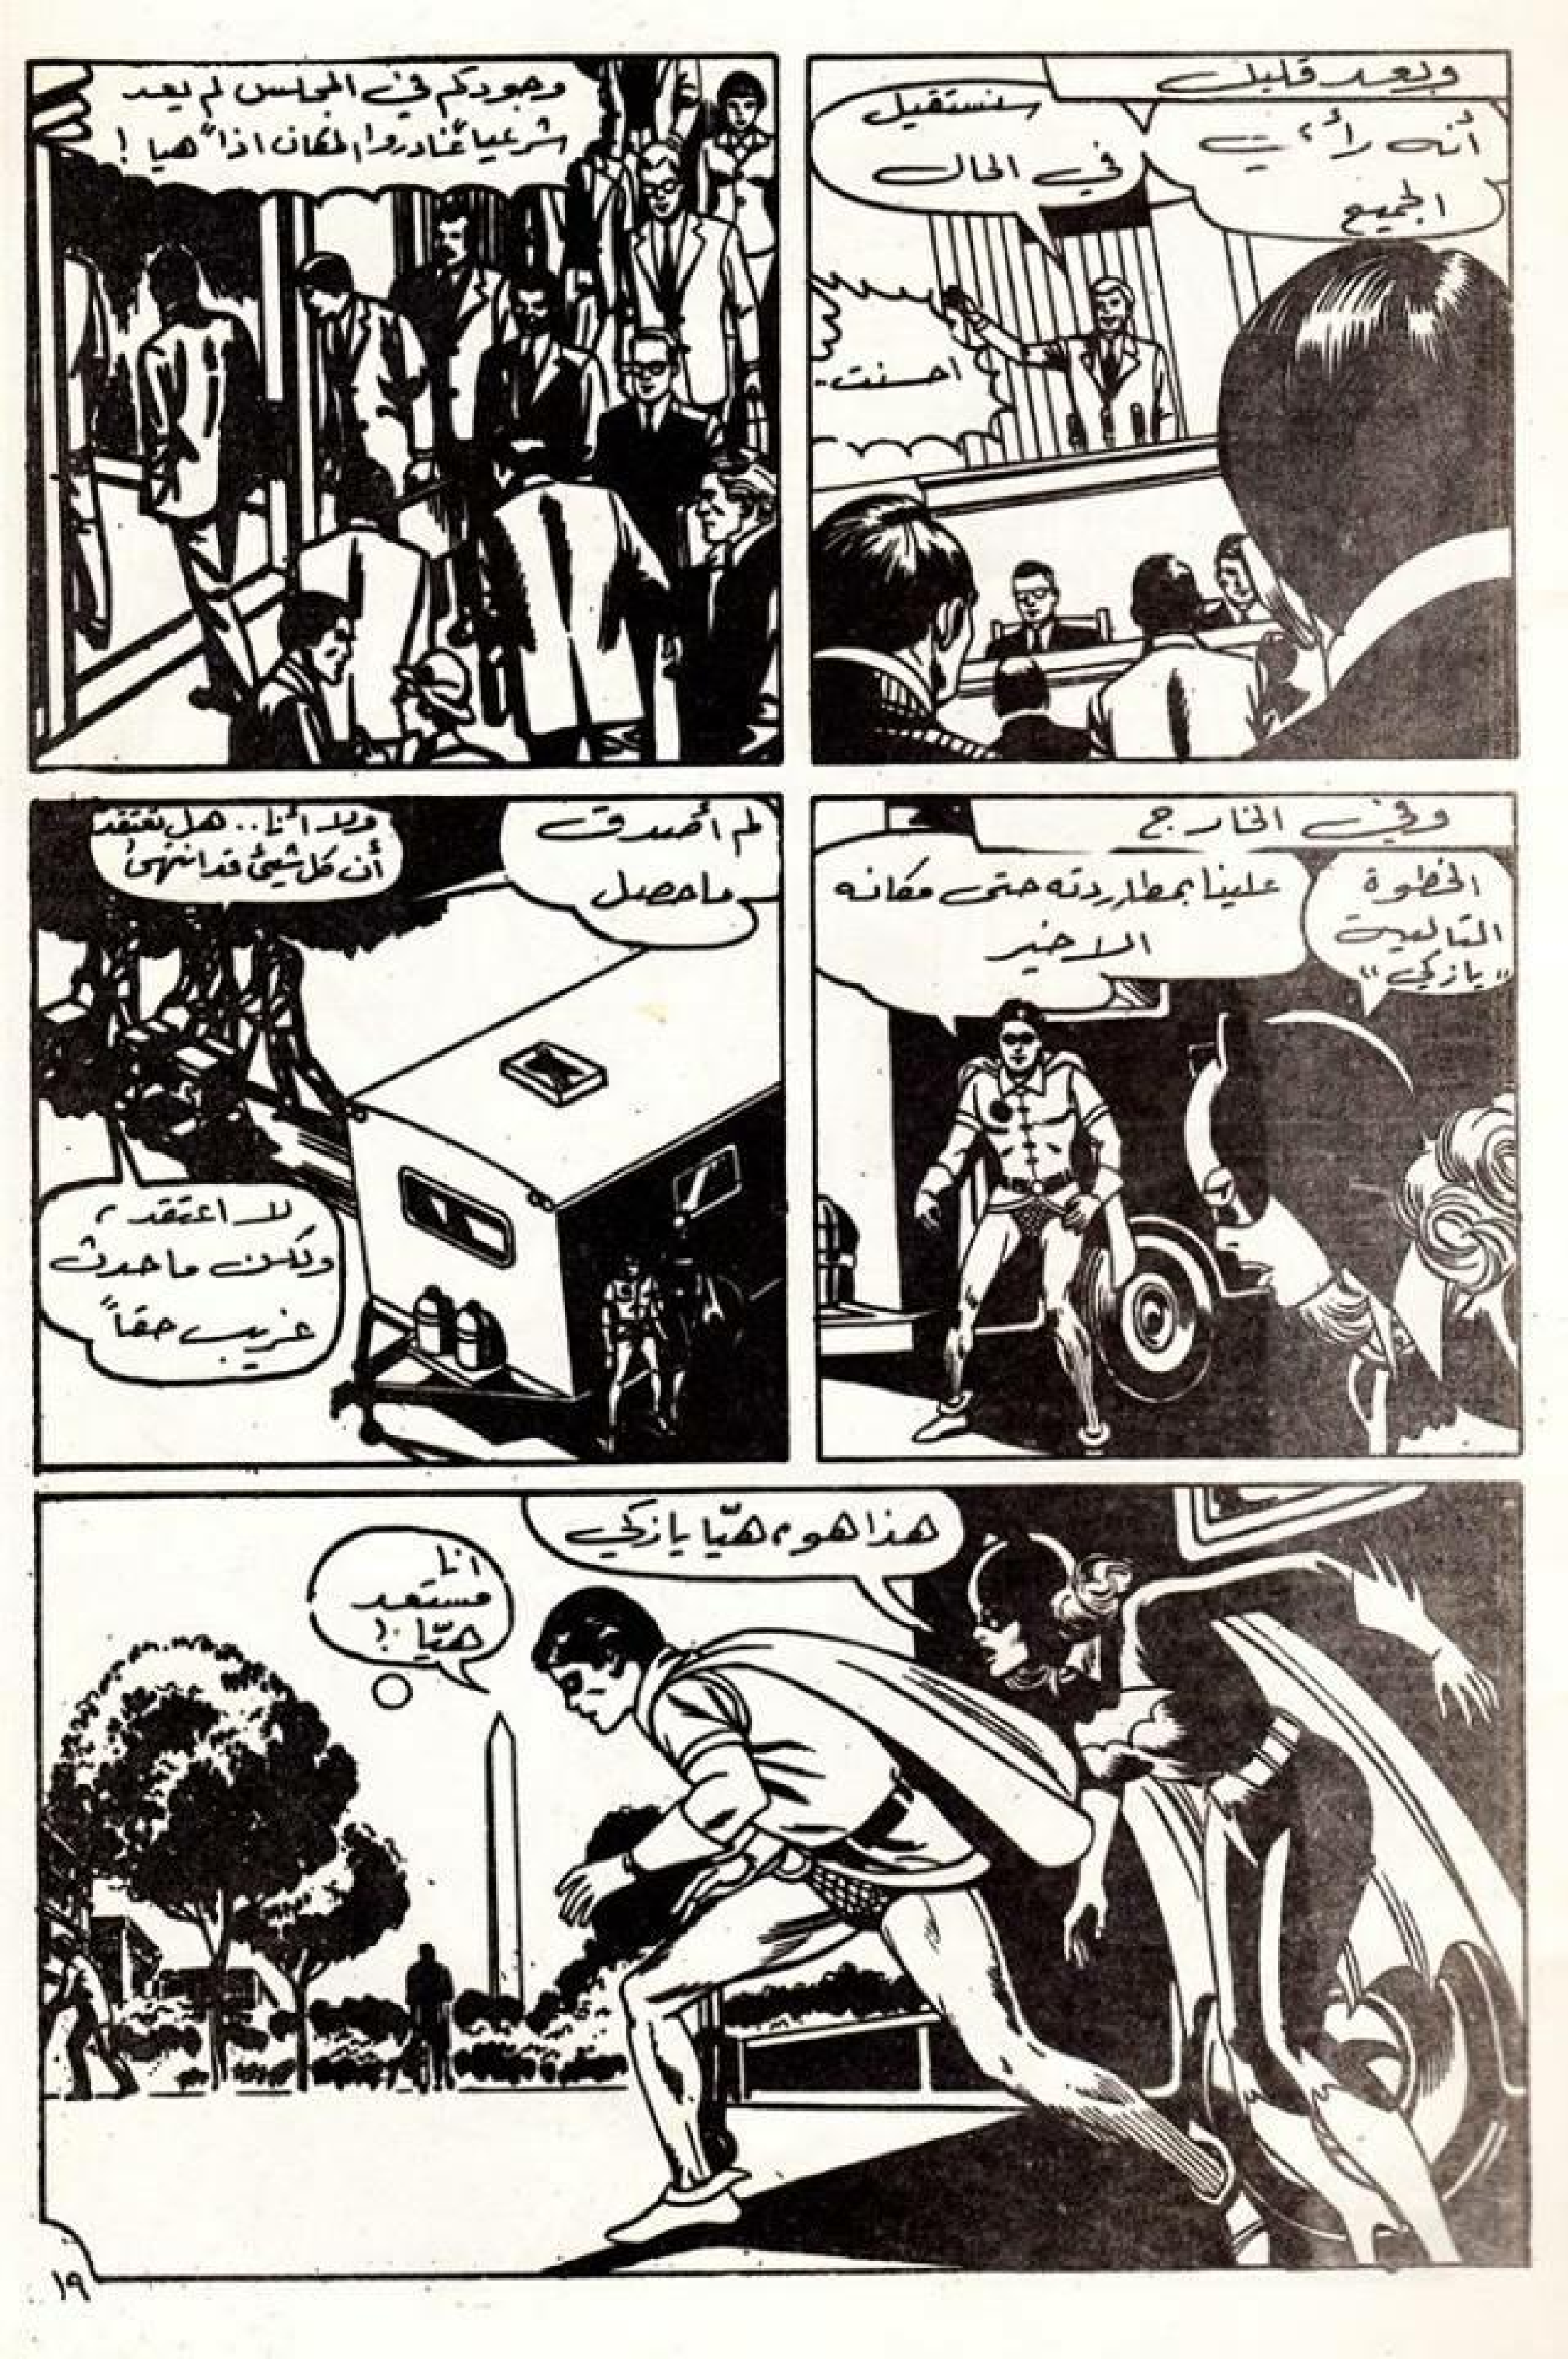 وبعد قليل
أنه رأي
الجميع
سنستقيل
في الحال
احسنت..
وجودكم في المجلس لم يعد
شرعياً غادروا المكان اذاً هيا !
وفي الخارج
الخطوة
التالية
"يازكي"
علينا بمطاردته حتى مكانه
الاخير
لم أصدق
ماحصل
ولا أنا.. هل تعتقد
أن كل شيئ قد انتهى
لا اعتقد ،
ولكن ماحدث
غريب حقاً
هذا هو ، هيّا يازكي
انا
مستعد
هيّا !
١٩